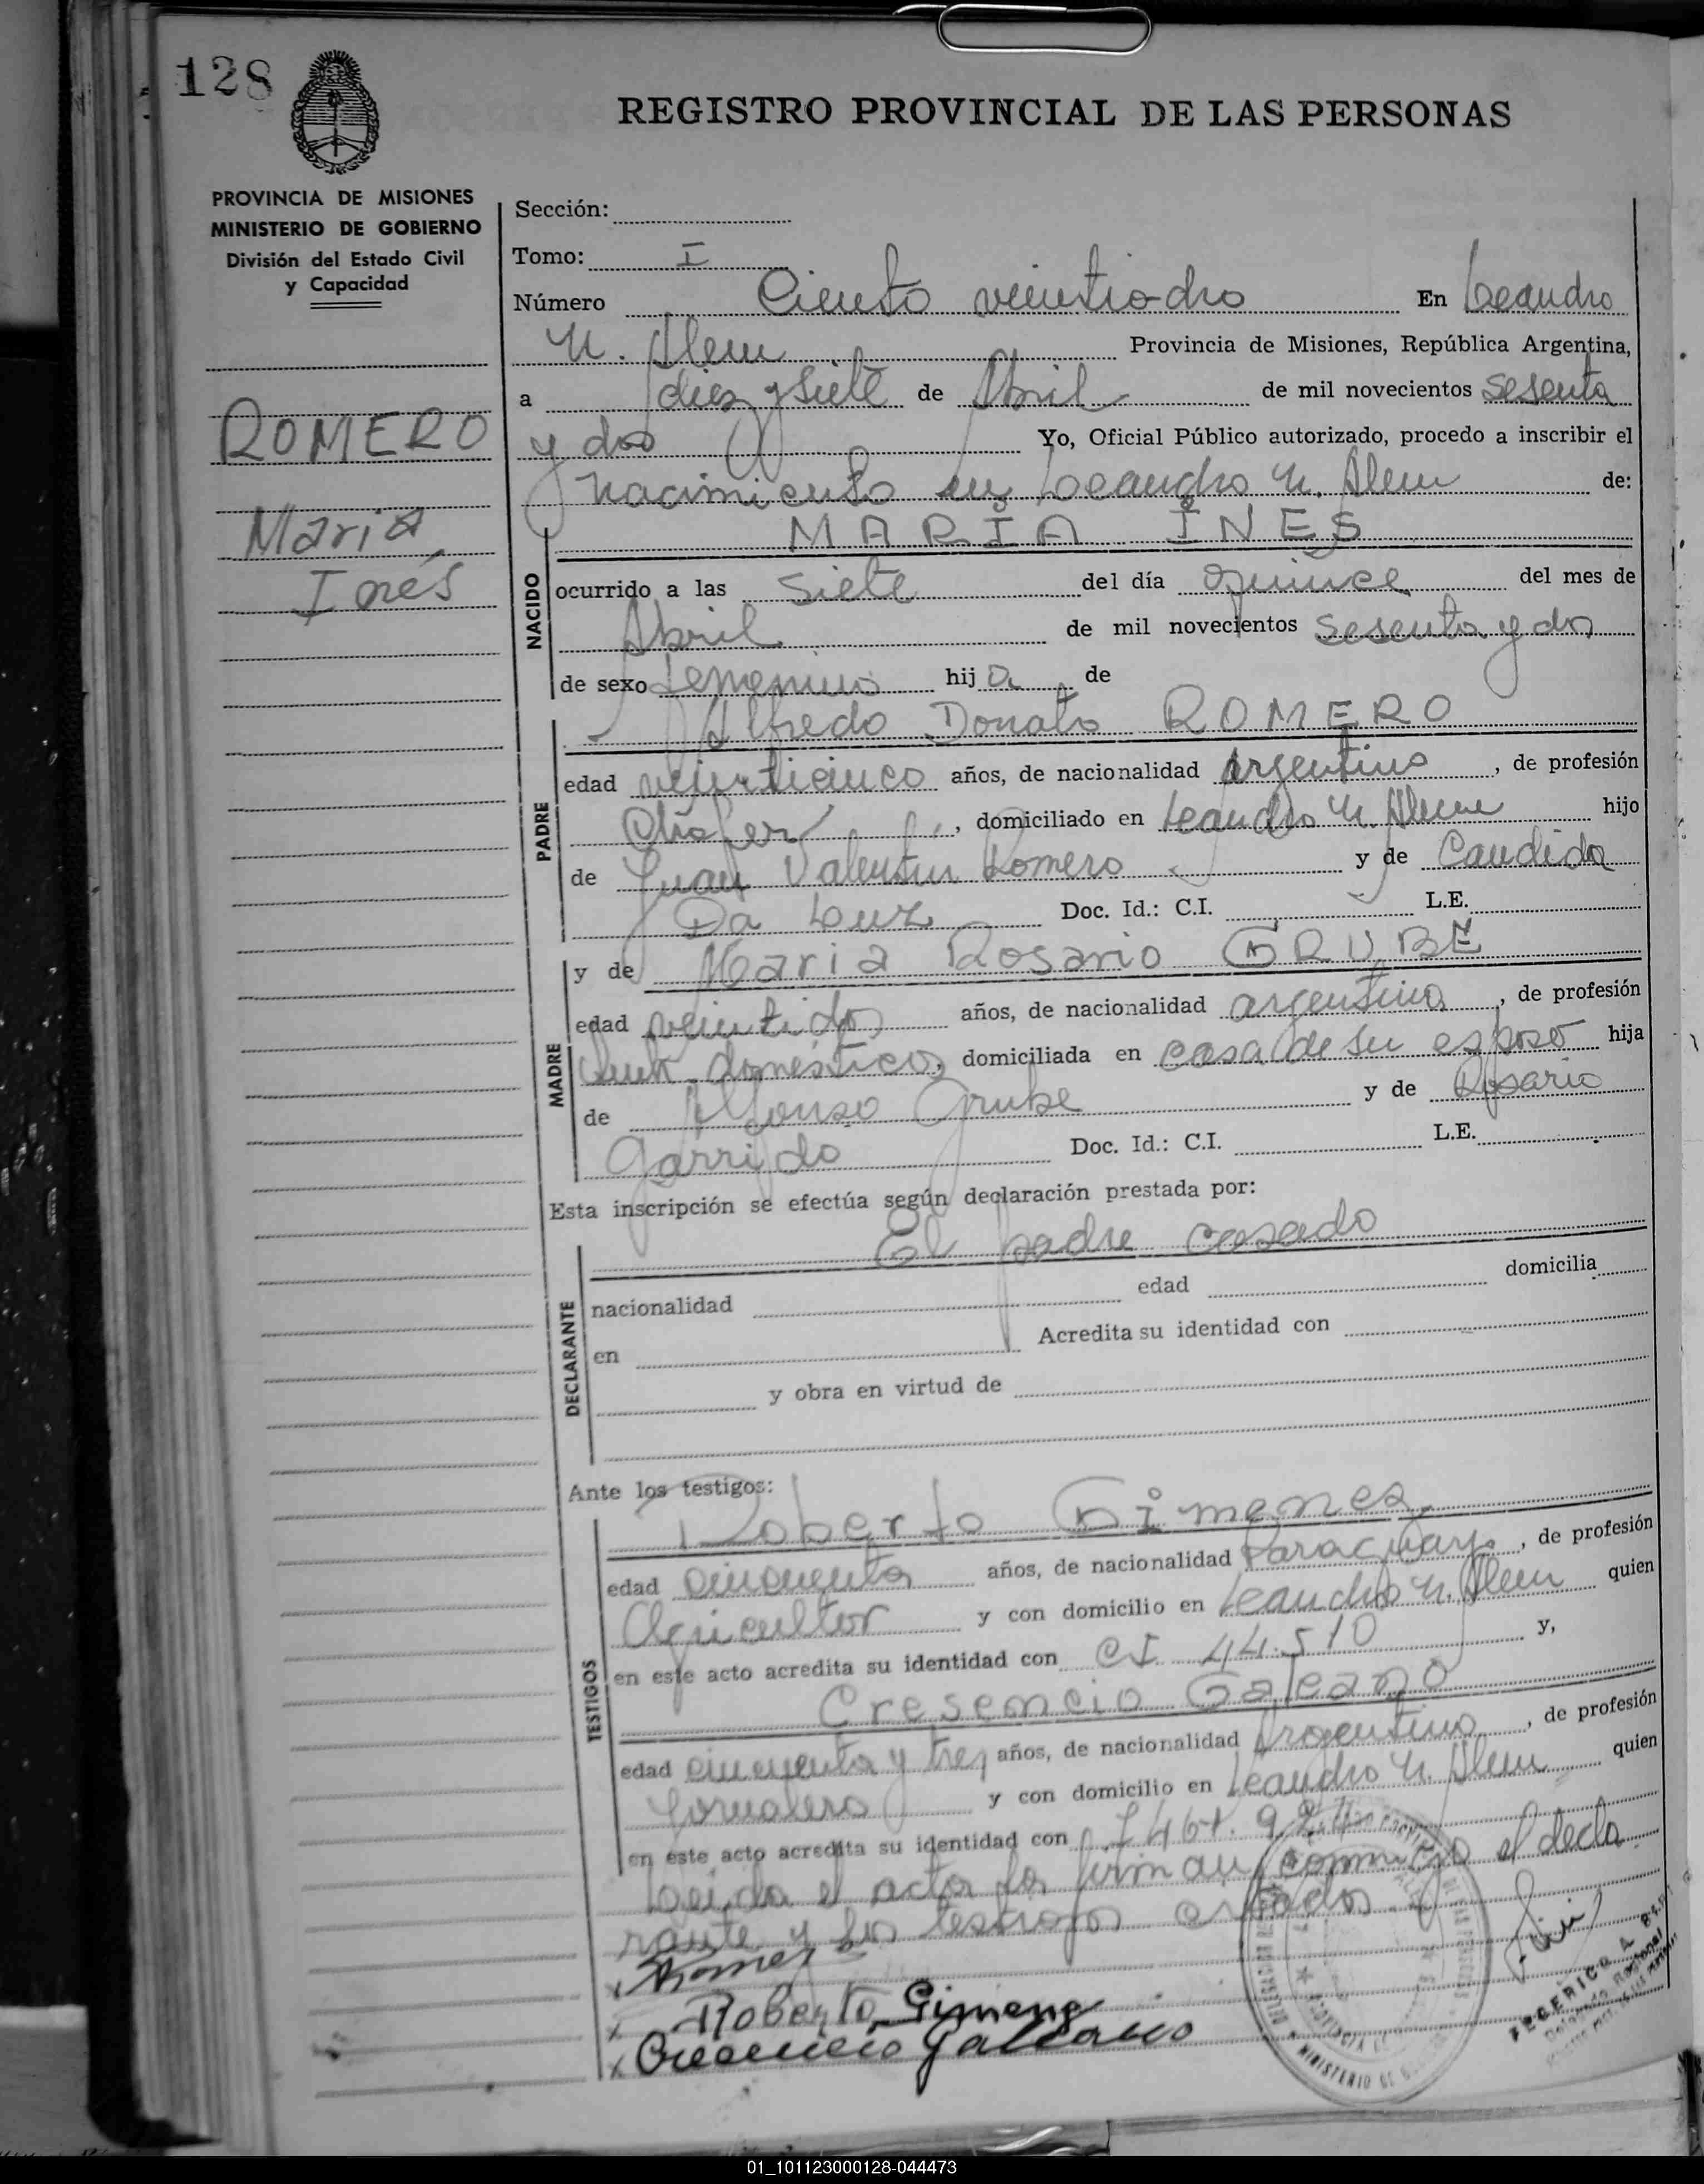 128
REGISTRO PROVINCIAL DE LAS PERSONAS
PROVINCIA DE MISIONES
MINISTERIO DE GOBIERNO
División del Estado Civil
y Capacidad
ROMERO
Maria
Inés
Sección:
Tomo: I
Número Ciento veintiocho En Leandro
N. Alem Provincia de Misiones, República Argentina,
a diez y siete de Abril de mil novecientos sesenta
y dos Yo, Oficial Público autorizado, procedo a inscribir el
nacimiento en Leandro N. Alem de:
MARÍA INES
NACIDO
ocurrido a las siete del día quince del mes de
Abril de mil novecientos sesenta y dos
de sexo femenino hija de
Alfredo Donato ROMERO
PADRE
edad veinticinco años, de nacionalidad argentino, de profesión
Chofer, domiciliado en Leandro N. Alem hijo
de Juan Valentin Romero y de Candida
Da Luz Doc. Id.: C.I. L.E.
y de Maria Rosario GRUBE
MADRE
edad veintidos años, de nacionalidad argentina, de profesión
domésticos, domiciliada en casa de su esposo hija
de Alfonso Grube y de Rosario
Garrido Doc. Id.: C.I. L.E.
Esta inscripción se efectúa según declaración prestada por:
El padre casado
DECLARANTE
nacionalidad edad domicilia
en Acredita su identidad con
y obra en virtud de
Ante los testigos:
Roberto Gimenez
TESTIGOS
edad cincuenta años, de nacionalidad Paraguayo, de profesión
Agricultor y con domicilio en Leandro N. Alem quien
en este acto acredita su identidad con CI 44.510 y,
Cresencio Galeano
edad cincuenta y tres años, de nacionalidad Argentino, de profesión
Jornalero y con domicilio en Leandro N. Alem quien
en este acto acredita su identidad con
Leida el acta la firman conmigo el decla
rante y los testigos citados
Romero
Roberto Gimenez
Cresencio Galeano
FEDERICO A.
01_101123000128-044473